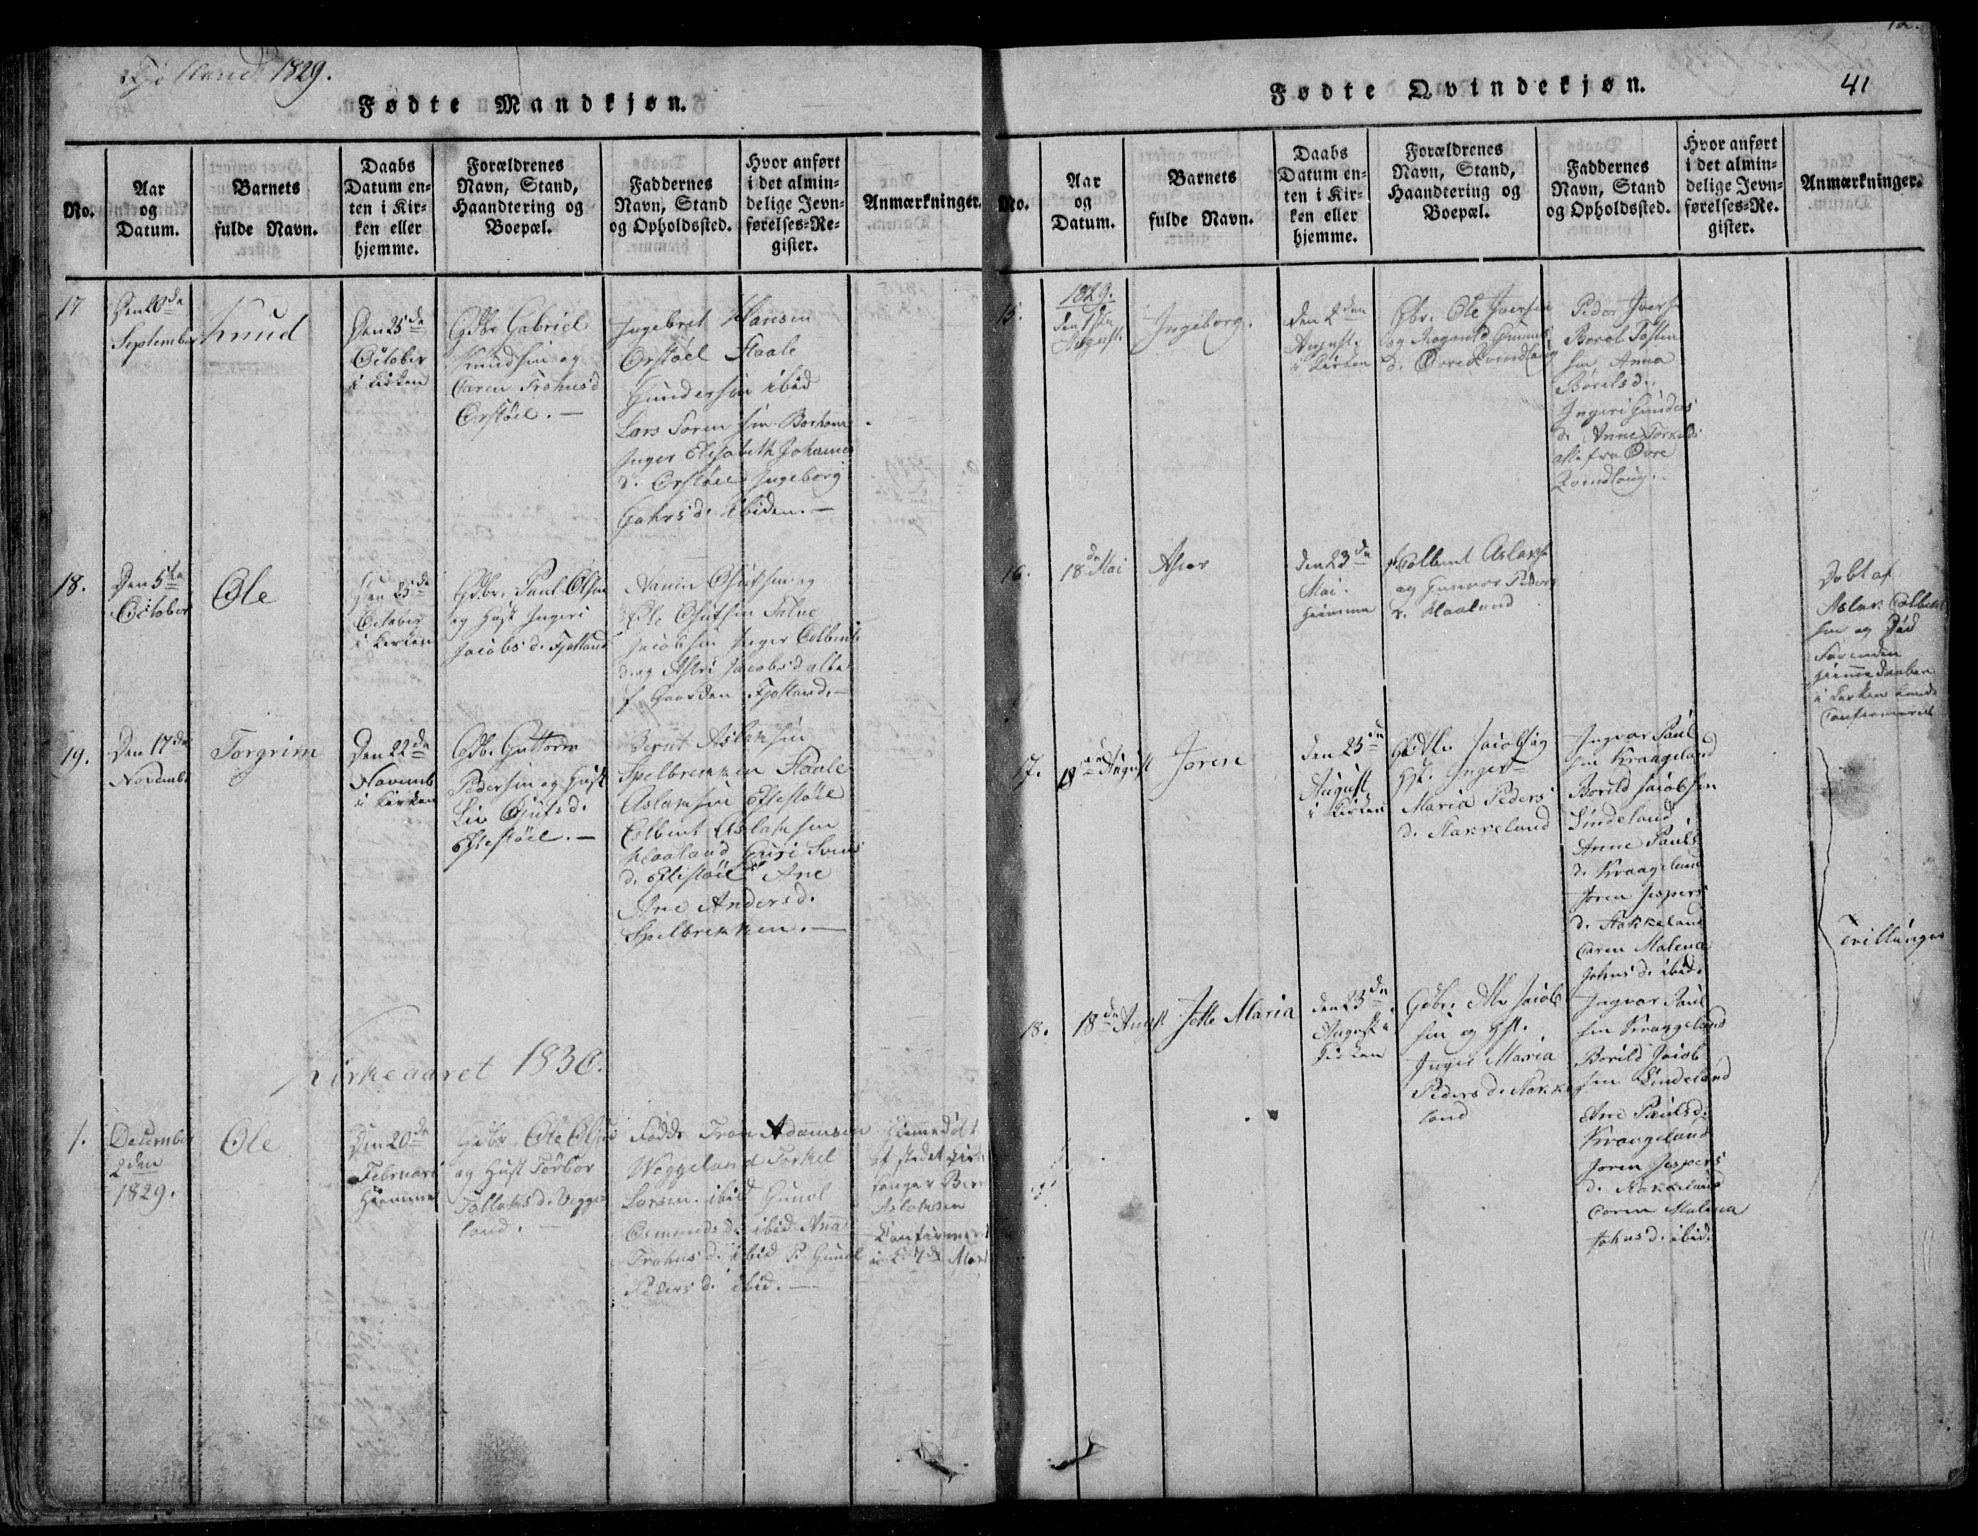 Fjotland 1829.
Fødte Mandkjøn.
No.
Aar
og
Datum.
Barnets
fulde Navn.
Daabs
Datum en-
ten i Kir-
ken eller
hjemme.
Forældrenes
Navn, Stand,
Haandtering og
Boepæl.
Faddernes
Navn, Stand
og Opholdssted.
Hvor anført
i det almin-
delige Jevn-
førelses-Re-
gister.
Anmærkninger.
17
Den 20de
September
Knud
Den 25de
October
i Kirken
Gdbr Gabriel
Knudsen og
Caren Trohnsd
Orstöel. —
Ingebret Hansen
Orstöel Staale
Gundersen ibid
Lars Sørensen
Inger Elisabeth Johannes
d. Orstöel Ingeborg
d. ibidem. —
18.
Den 5te
October
Ole
Den 25de
October
i Kirken
Gdbr. Paul Olsen
og Hust Ingeri
Jacobs d. Fjotland
og
Jacobsen Inger Colbents
d. og Astri Jacobsd alle
f Gaarden Fjotland. —
19.
Den 17de
Novembr
Torgrim
Den 22de
Novemb
i Kirken
Gdb. Guttorm
Pedersen og Hust
Liv
Eftestöel. —
Bernt Aslaksen
Spelbrekken Staale
Aslaksen Eftestöel
Colbent Aslaksen
Haaland Guri Svens
d. Eftestöel Ane
Ane Andersd.
Spelbrekken. —
Kirkeaaret 1830.
1.
December
2den
1829.
Ole
Den 20de
Februari
Hiemme
Gdbr. Ole Olsen
og Hust Torbor
Tallaksd. Vegge
land. —
Fadd. Tron Adamsen
Veggeland Torkel
Larsen ibid Gunol
Osmundsd. ibid Anna
Trohns d. ibid P. Gunol
Peders d. ibid. —
Hiemmedöbt
af stedet
sanger Bernt
Aslaksen
Confirmeret
i 7de Mart
Fødte Qvindekjøn.
41
No.
Aar
og
Datum.
Barnets
fulde Navn.
Daabs
Datum en-
ten i Kir-
ken eller
hjemme.
Forældrenes
Navn, Stand,
Haandtering og
Boepæl.
Faddernes
Navn, Stand
og Opholdssted.
Hvor anført
i det almin-
delige Jevn-
førelses-Re-
gister.
Anmærkninger.
15.
1829.
den 1ste
August
Ingeborg.
den 2den
August.
i Kirken
Gbr. Ole Iversen
og Ragnild Gunnus
d. Øvre Kvindlaug
Peder Ivers
Borol Tosten
sen Anna
Börilsd.
Ingeri Gunders
d. Anne Torkelds
alle fra Øvre
Kvindlaug.
16.
18de Mai
Aser
den 23de
Mai.
hiemme
Colbent Aslaks
og Gunnor Peders
d. Haaland
Döbt af
Aslak Colbent
sen og Död
förinden
hiemmedaaben
i Kirken
Confirmeret
17.
18de August
Joren
den 23de
August
i Kirken
Jacobs og
Hst. Inger
Maria Peders
d. Stakkeland
Ingvar Paul
sen Kraageland
Borild Jacobsen
Sindeland
Anne Pauls
d. Kraageland
Joren Jespers
d. Stakkeland
Caren Malena
Johns d. ibid.
Tvillinger
18.
18de Augst
Jette Maria
den 23de
August i
Kirken
Gdbr. Atle Jacob
sen og Hst.
Inger Maria
Peders d. Stakke
land
Ingvar Paul
sen Kraageland
Borild Jacob
sen Sindeland
Ane Paulsd.
Kraageland
Joren Jespers
d. Stakkeland
Caren Malena
Johns d. ibid.